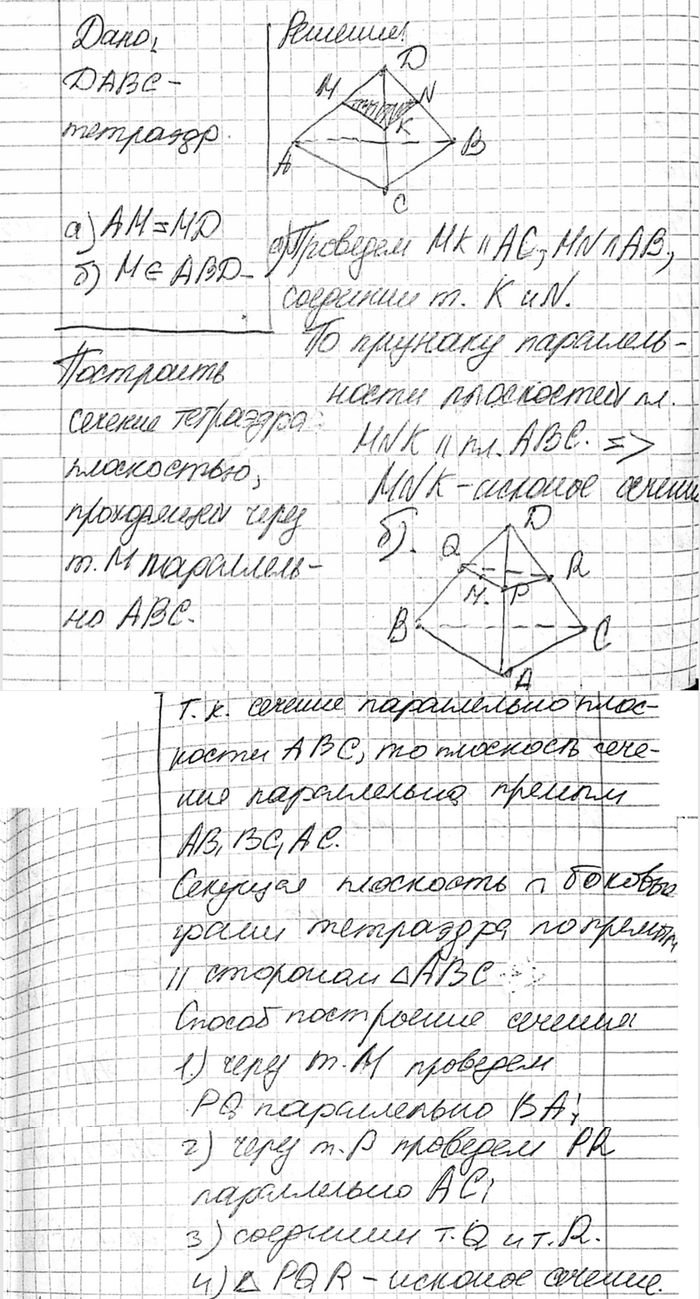 Дано:
DABC –
тетраэдр.
а) AM = MD
б) M ∈ ABD –
Построить
сечение тетраэдра
плоскостью,
проходящей через
т. M параллель-
но ABC.
Решение:
D
M
N
K
A
B
C
а) Проведем MK ∥ AC, MN ∩ AB,
соединим т. K и N.
По признаку параллель-
ности плоскостей пл.
MNK ∥ пл. ABC. =>
MNK – искомое сечение
б).
D
Q
R
M.
P
B
C
A
Т. к. сечение параллельно плос-
кости ABC, то плоскость сече-
ние параллельна прямым
AB, BC, AC.
Секущая плоскость ∩ боковые
грани тетраэдра по прямым,
∥ сторонам △ABC
Способ построение сечения
1.) через т. M проведем
PQ параллельно BA;
2) через т. P проведем PR
параллельно AC;
3) соединим т. Q и т. R.
4) △ PQR – искомое сечение.